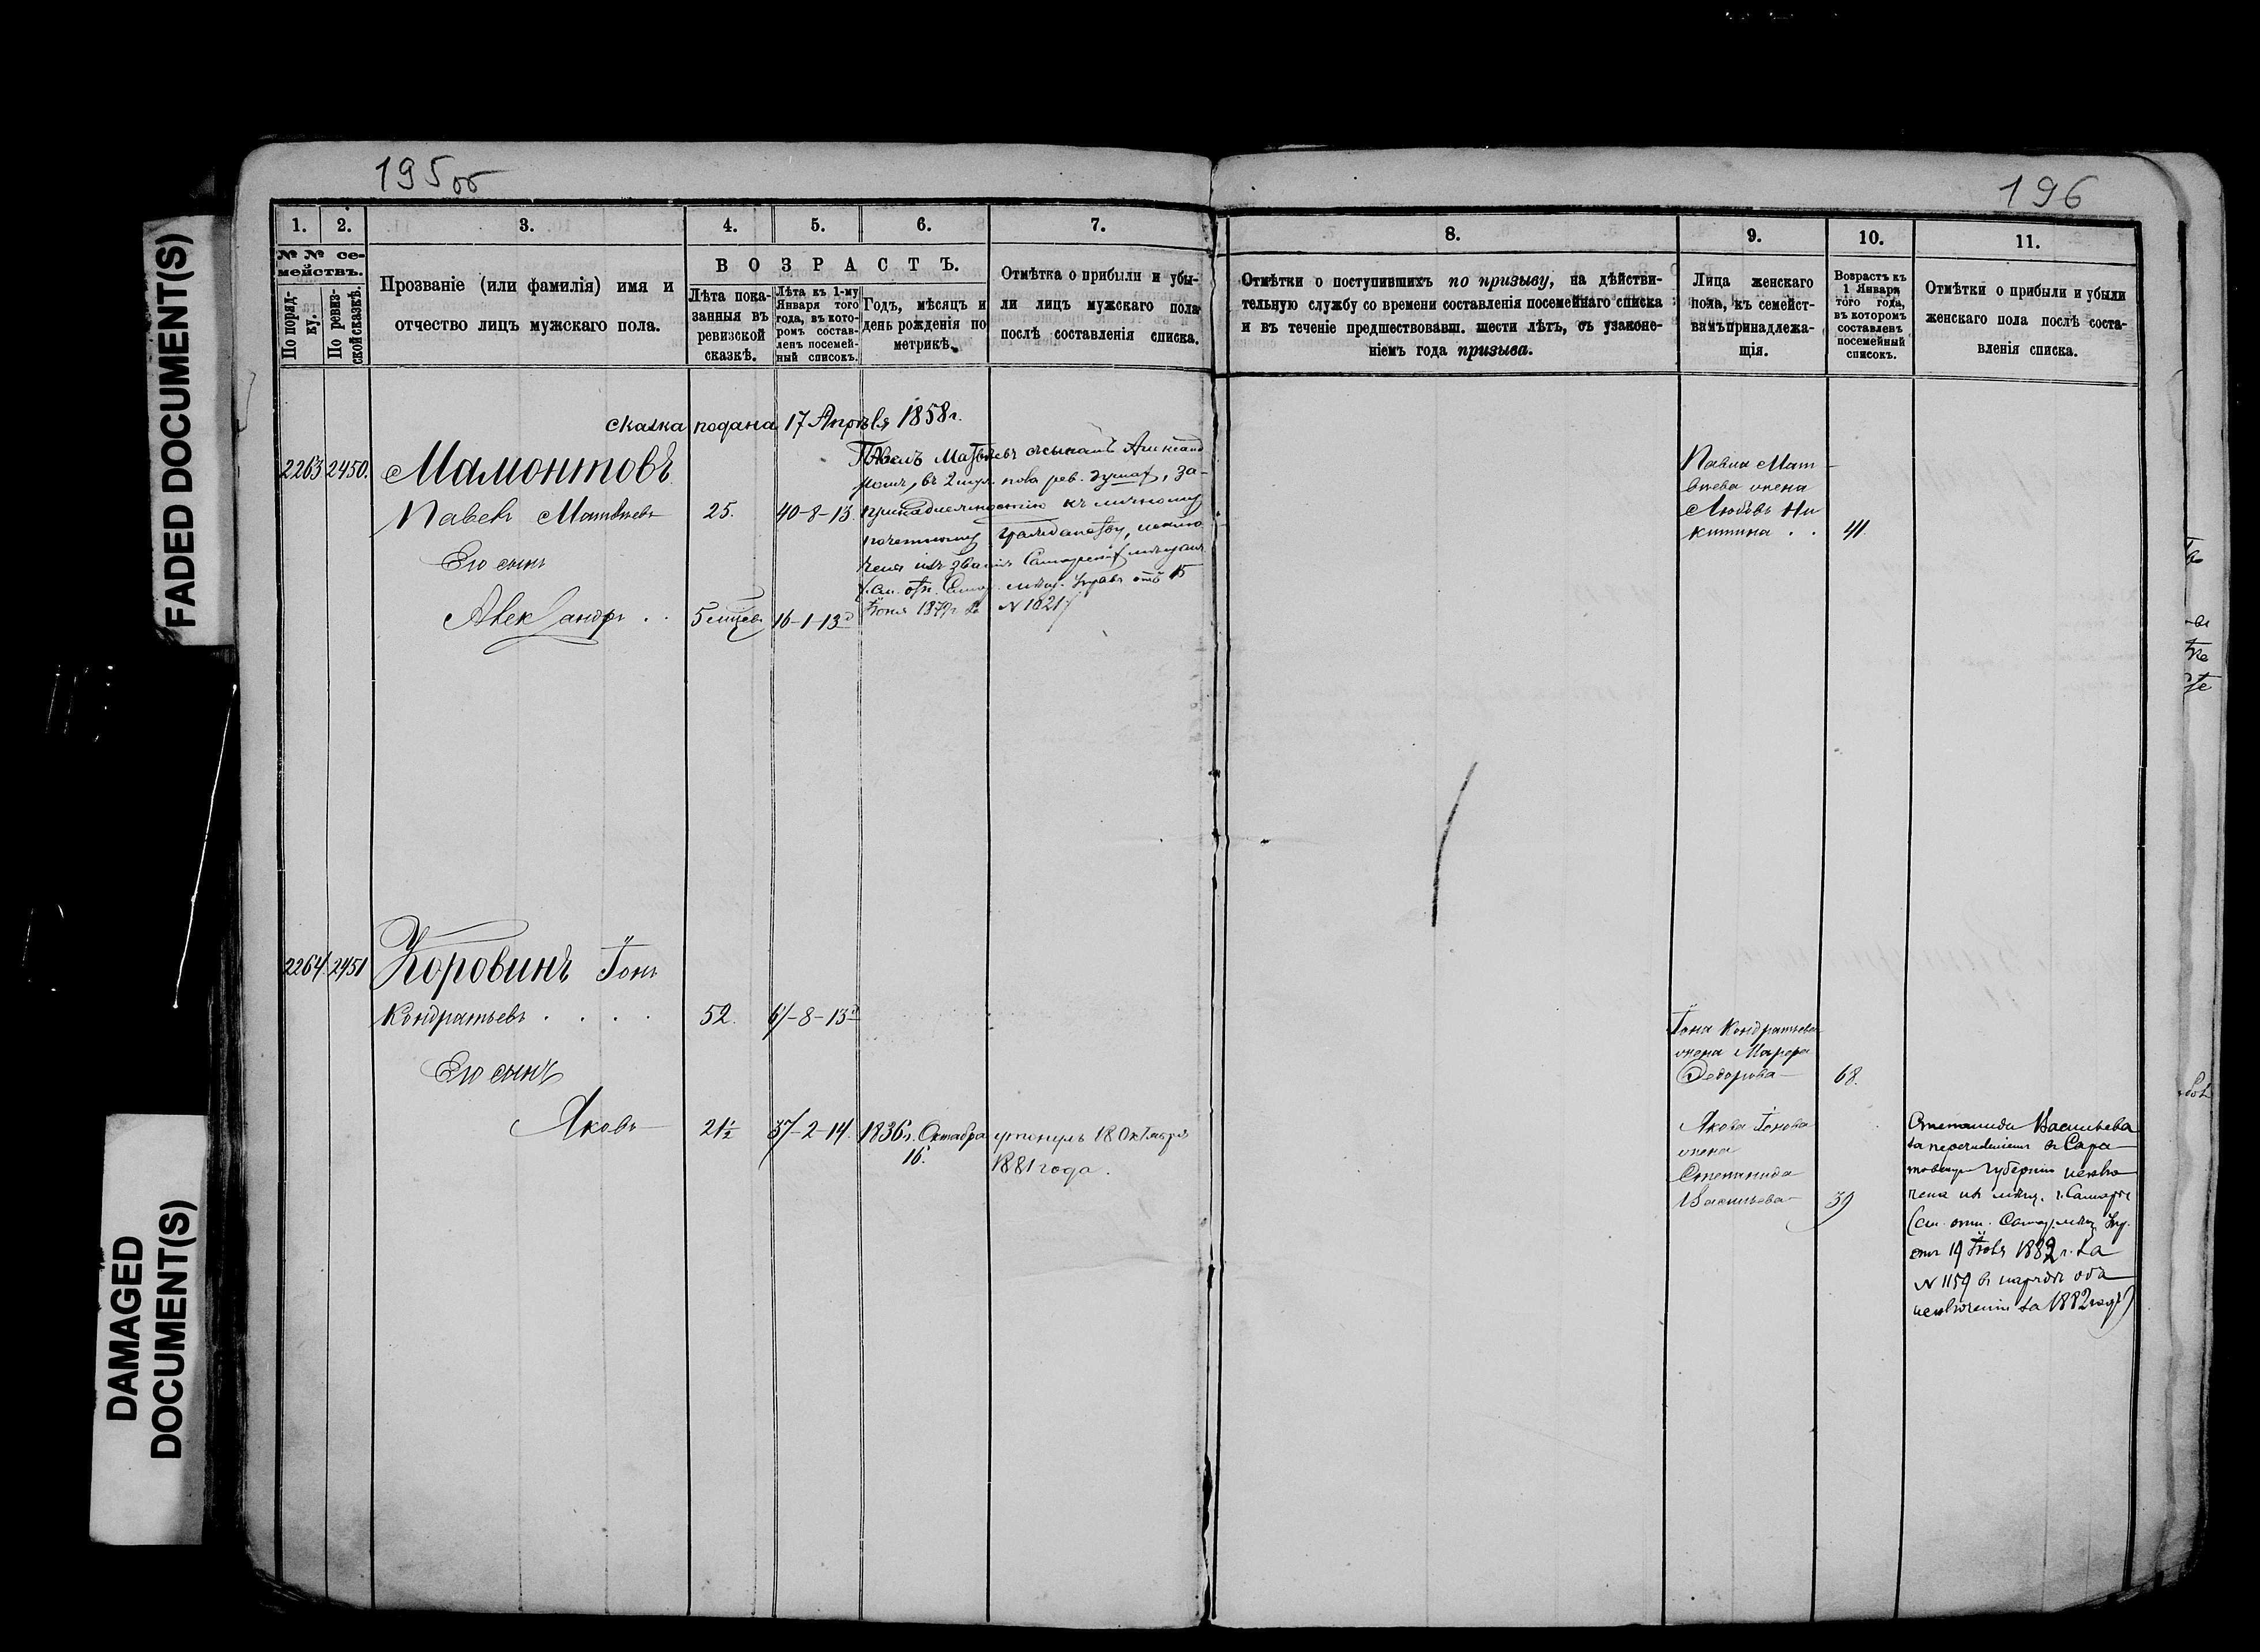 FADED DOCUMENT(S)
DAMAGED
DOCUMENT(S)
195об
1. 2. 3. 4. 5. 6. 7.
№ № се-
мействъ.
По поряд-
ку.
По ревиз-
ской сказкѣ.
Прозваніе (или фамилія) имя и
отчество лицъ мужскаго пола.
ВОЗРАСТЪ.
Лѣта пока-
занныя въ
ревизской
сказкѣ.
Лѣта къ 1-му
Января того
года, въ кото-
ромъ состав-
ленъ посемей-
ный списокъ.
Годъ, мѣсяцъ и
день рожденія по
метрикѣ.
Отмѣтка о прибыли и убы-
ли лицъ мужскаго пола
послѣ составленія списка.
сказка подана 17 Апрѣля 1858 г.
2263 2450. Мамонтовъ
Павелъ Матвѣевъ 25. 40-8-13.
Его сынъ
Александръ . . 5 мѣсяцев 16-1-13 д
Павелъ Матвѣевъ съ сыномъ Александ
ромъ, въ 2 муж. пола рев. душах, за
принадлежностію къ личному
почетному гражданству, исклю
чены изъ званія Самарских мещан
(см. отн. Самар. мѣщ. Управ. отъ 15
Іюня 1879 г. за № 1621)
2264 2451 Коровинъ Іонъ
Кондратьевъ . . . . 52. 67-8-13 д
Его сынъ
Яковъ 21½ 37-2-14. 1836 г. Октября утонулъ 18 Октября
16. 1881 года.
196
8. 9. 10. 11.
Отмѣтки о поступившихъ по призыву, на дѣйстви-
тельную службу со времени составленія посемейнаго списка
и въ теченіе предшествовавш. шести лѣтъ, съ узаконе-
ніемъ года призыва.
Лица женскаго
пола, къ семейст-
вамъ принадлежа-
щія.
Возрастъ къ
1 Января
того года,
въ которомъ
составленъ
посемейный
списокъ.
Отмѣтки о прибыли и убыли
женскаго пола послѣ соста-
вленія списка.
Павла Мат-
вѣева жена
Любовь Ни
китина . . 41.
Іона Кондратьева
жена Марфа
Федорова 68.
Якова Іонова
жена
Степанида
Васильева 39
Степанида Васильева
за перечисленіем в Сара
товскую губернію исклю
чена из мѣщ. г. Самары
(см. отн. Самар. мѣщ. Упр.
отъ 19 1882 г. за
№ 1159 в нарядѣ объ
исключеніи за 1882 годъ)